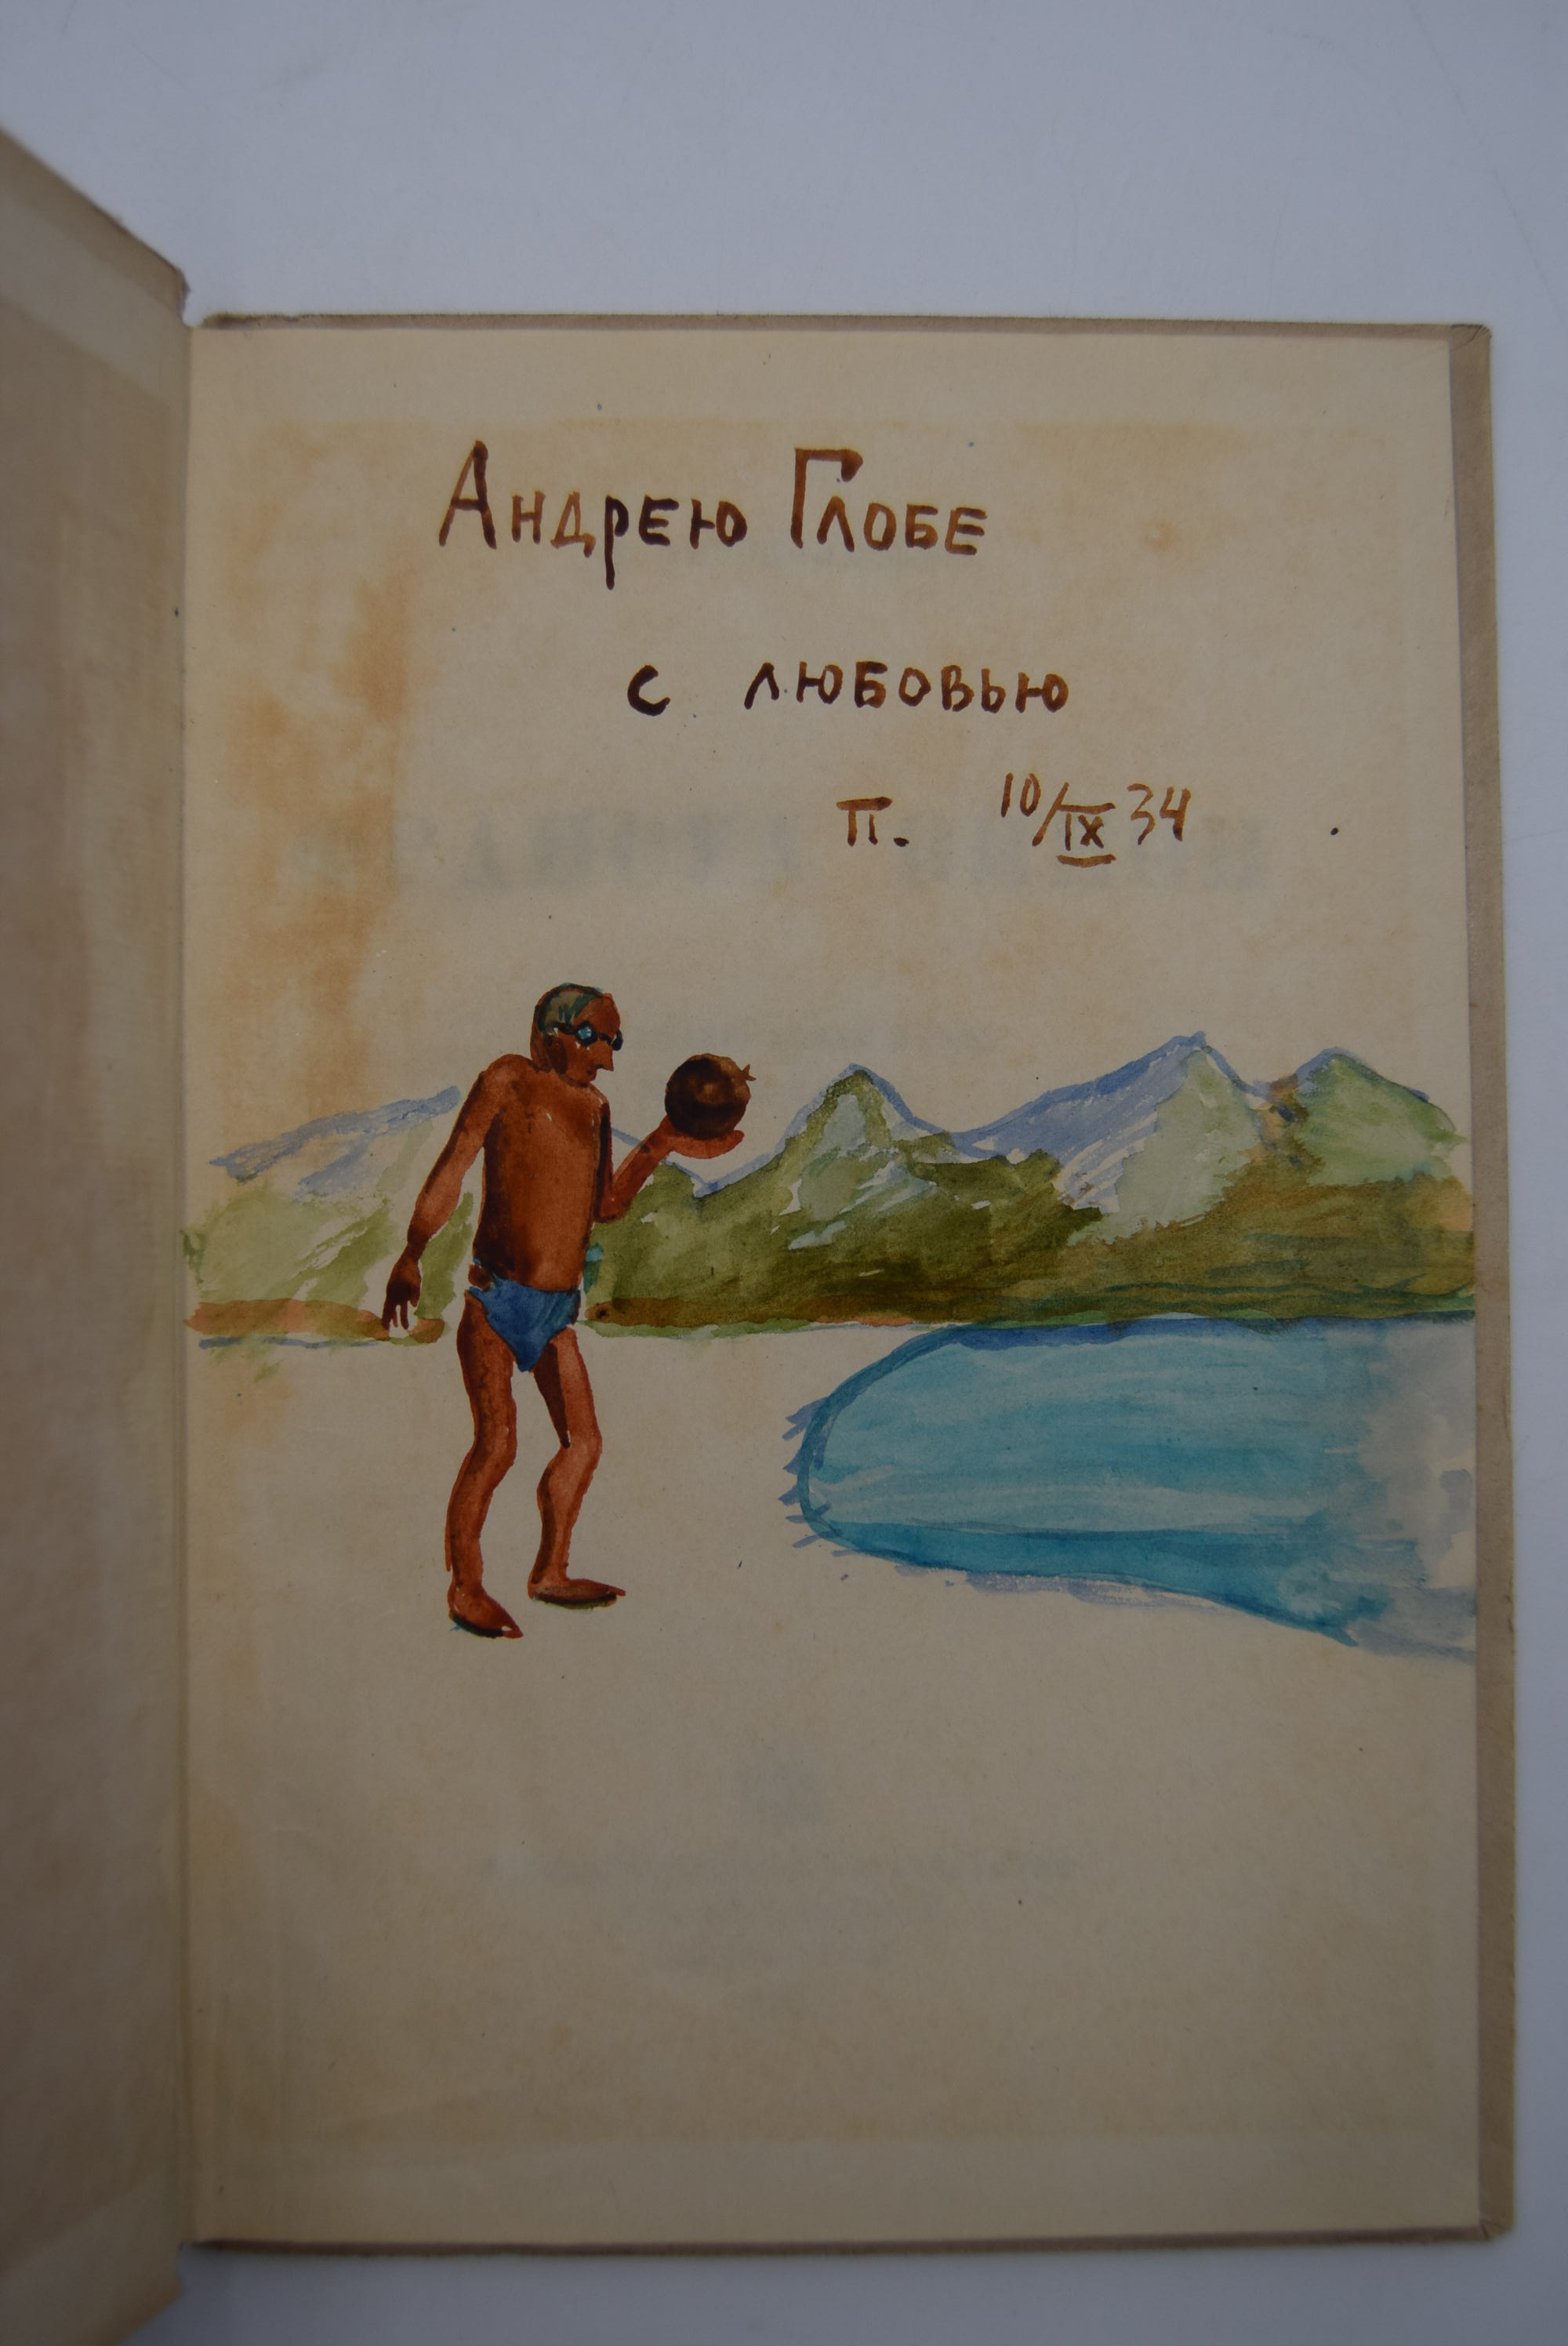 Андрею Глобе
с любовью
П. 10/IX 34